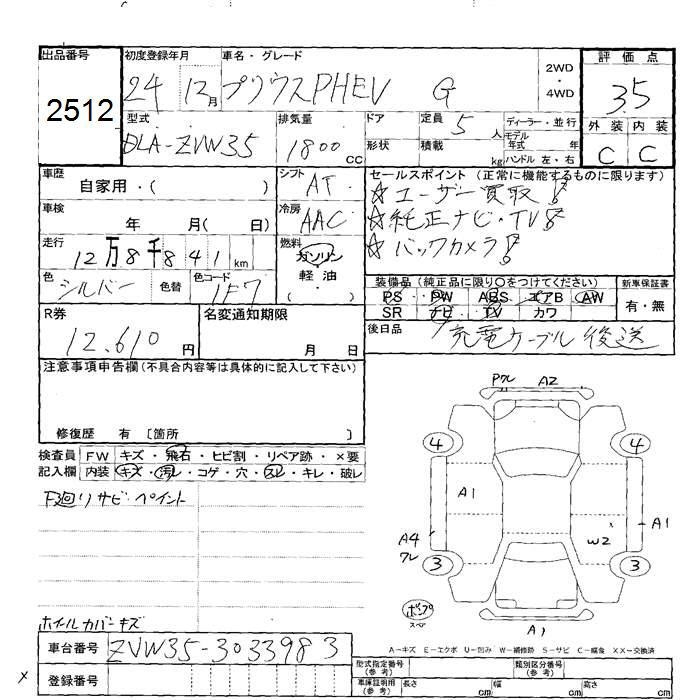 出品番号 初度登録年月 車名・グレード 2WD・4WD 評価点
2512 24 12月 プリウスPHEV G 3.5
型式 排気量 ドア 定員 5人 ディーラー・並行 外装 内装
DLA-ZVW35 1800cc 形状 積載 kg モデル年式 年 ハンドル 左・右 C C
車歴 自家用・( ) シフト AT セールスポイント (正常に機能するものに限ります)
☆ユーザー買取!
車検 年 月( 日) 冷房 AAC ☆純正ナビ・TV!
走行 12万8千841km 燃料 ガソリン ☆バックカメラ!
色 シルバー 色替 色コード 1F7 軽油 ( ・ )
装備品 (純正品に限り○をつけてください) 新車保証書
PS PW ABS エアB AW 有・無
SR ナビ TV カワ
R券 12,610円 名変通知期限 月 日
後日品 充電ケーブル後送
注意事項申告欄(不具合内容等は具体的に記入して下さい)
修復歴 有 〔箇所 〕
検査員 FW キズ・飛石・ヒビ割・リペア跡・×要
記入欄 内装 キズ・汚レ・コゲ・穴・スレ・キレ・破レ
下廻りサビ・ペイント
ホイルカバーキズ
Pワレ A2
4 4
A1
A4 ワレ W2 A1
3 3
A1
A-キズ E-エクボ U-凹み W-補修跡 S-サビ C-腐食 XX-交換済
車台番号 ZVW35-3033983
登録番号
型式指定番号(参考) 類別区分番号(参考)
車庫証明用(参考) 長さ cm 幅 cm 高さ cm
×